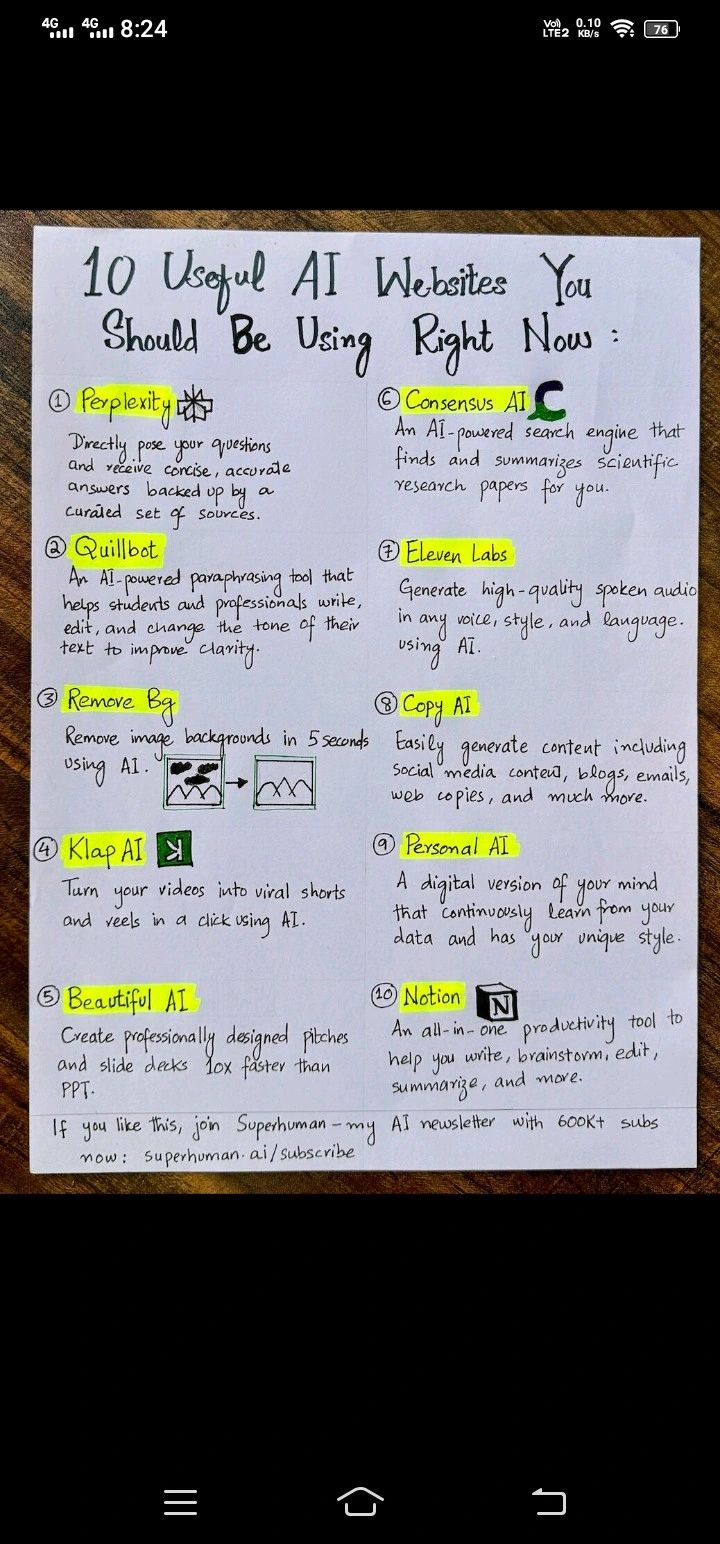 4G 4G 8:24
Vo) 0.10
LTE2 KB/s 76
10 Useful AI Websites You
Should Be Using Right Now :
① Perplexity
Directly pose your questions
and receive concise, accurate
answers backed up by a
curated set of sources.
② Quillbot
An AI-powered paraphrasing tool that
helps students and professionals write,
edit, and change the tone of their
text to improve clarity.
③ Remove Bg
Remove image backgrounds in 5 seconds
using AI.
④ Klap AI
Turn your videos into viral shorts
and reels in a click using AI.
⑤ Beautiful AI
Create professionally designed pitches
and slide decks 10x faster than
PPT.
⑥ Consensus AI C
An AI-powered search engine that
finds and summarizes scientific
research papers for you.
⑦ Eleven Labs
Generate high-quality spoken audio
in any voice, style, and language.
using AI.
⑧ Copy AI
Easily generate content including
social media content, blogs, emails,
web copies, and much more.
⑨ Personal AI
A digital version of your mind
that continuously learn from your
data and has your unique style.
⑩ Notion N
An all-in-one productivity tool to
help you write, brainstorm, edit,
summarize, and more.
If you like this, join Superhuman - my AI newsletter with 600K+ subs
now: superhuman.ai/subscribe